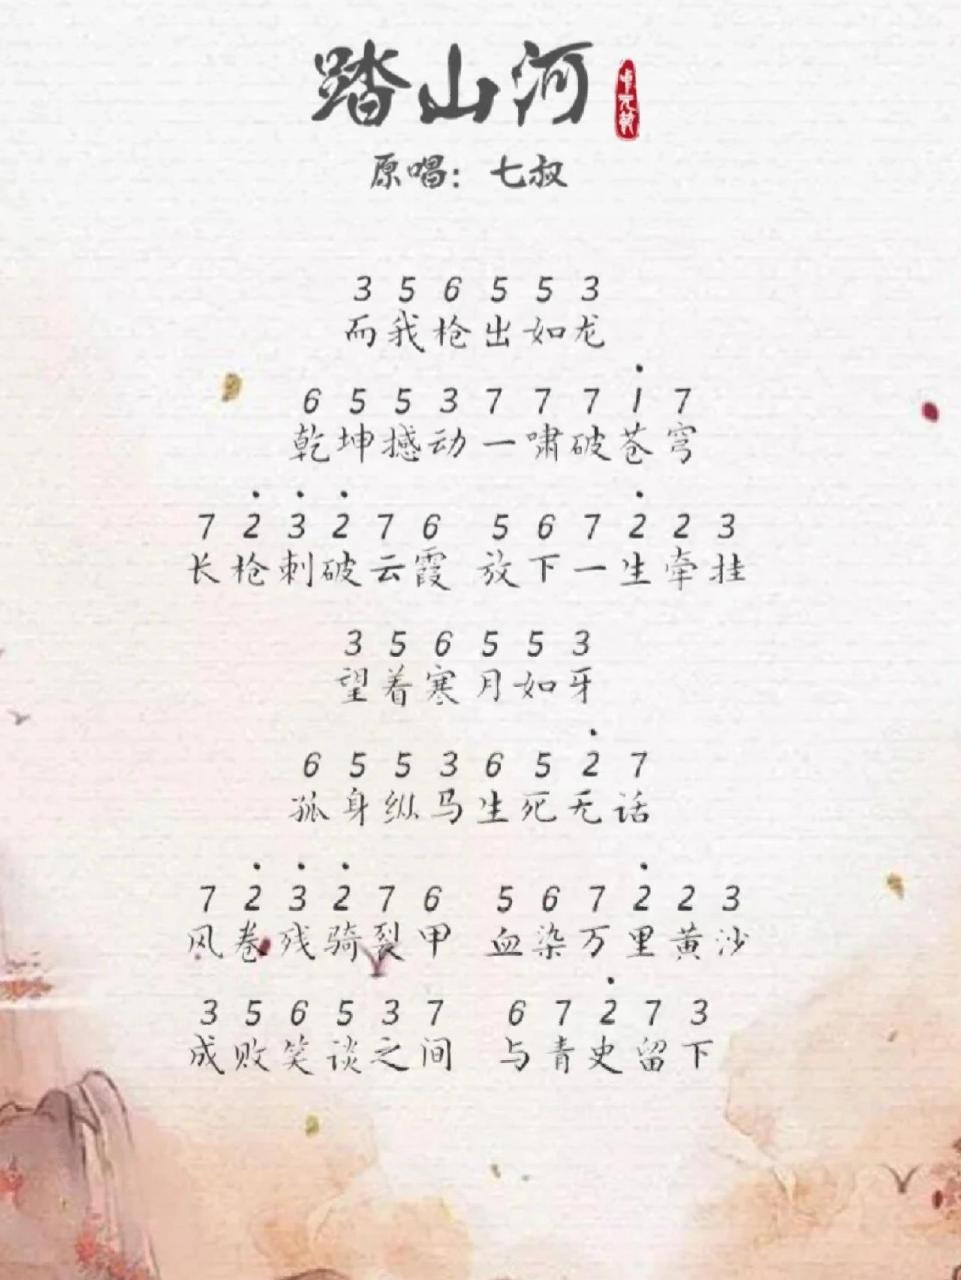 踏山河
原唱：七叔
3 5 6 5 5 3
而我枪出如龙
6 5 5 3 7 7 7 1̇ 7
乾坤撼动一啸破苍穹
7 2̇ 3̇ 2̇ 7 6 5 6 7 2̇ 2 3
长枪刺破云霞 放下一生牵挂
3 5 6 5 5 3
望着寒月如牙
6 5 5 3 6 5 2̇ 7
孤身纵马生死无话
7 2̇ 3̇ 2̇ 7 6 5 6 7 2̇ 2 3
风卷残骑裂甲 血染万里黄沙
3 5 6 5 3 7 6 7 2̇ 7 3
成败笑谈之间 与青史留下